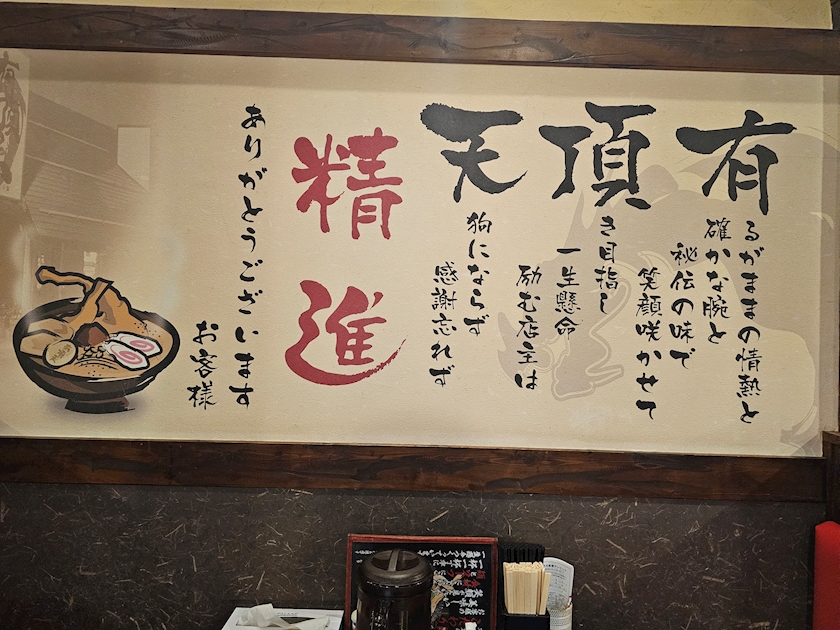 有るがままの情熱と
確かな腕と
秘伝の味で
笑顔咲かせて
頂き目指し
一生懸命
励む店主は
天狗にならず
感謝忘れず
精進
ありがとうございます
お客様